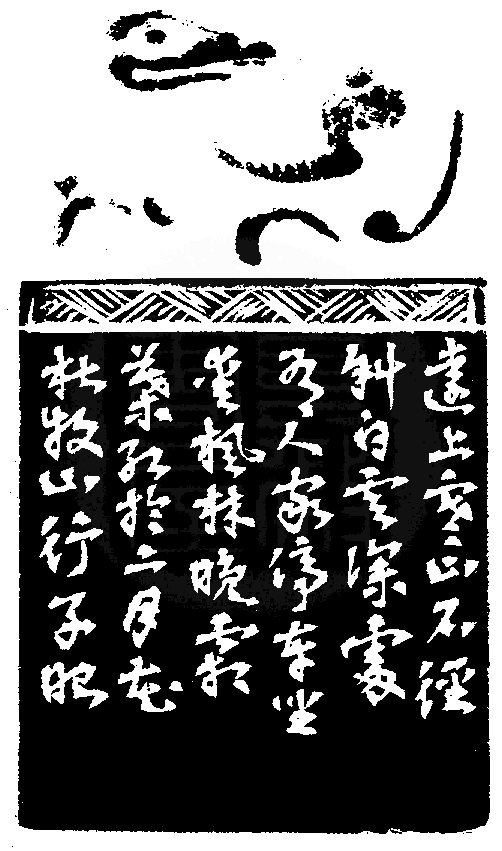 遠上寒山石徑
斜白雲深處
有人家停車坐
愛楓林晚霜
葉紅於二月花
杜牧山行子